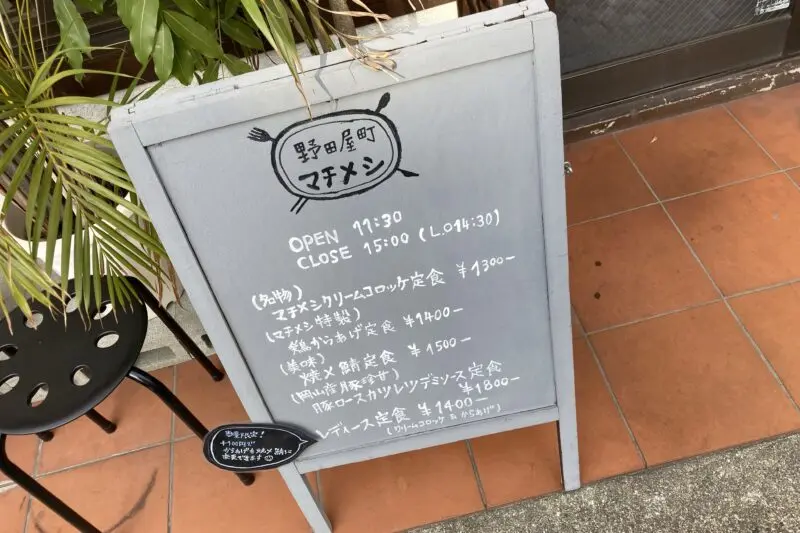 野田屋町
マチメシ
OPEN 11:30
CLOSE 15:00 (L.O14:30)
(名物)
マチメシクリームコロッケ定食 ¥1300-
(マチメシ特製)
鶏からあげ定食 ¥1400-
(美味)
焼〆鯖定食 ¥1500-
(岡山産豚珍甘)
豚ロースカツレツデミソース定食
¥1800-
レディース定食 ¥1400-
(クリームコロッケ & からあげ)
数量限定!
+100円で
からあげを
できます